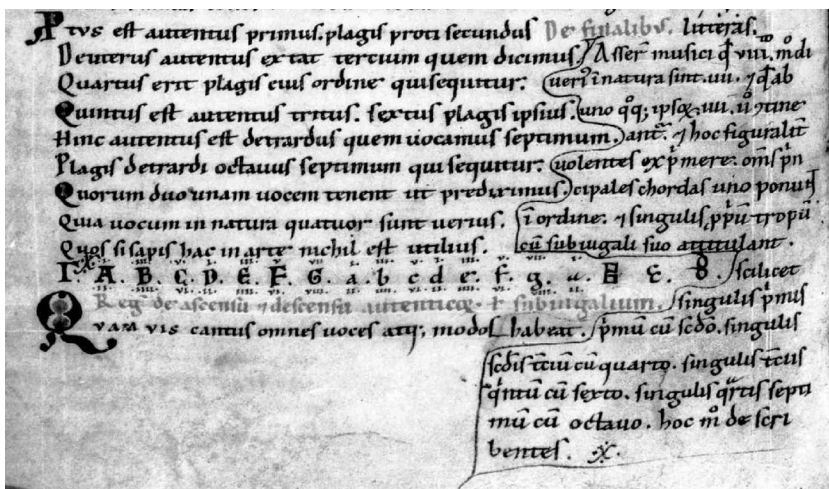 Ptvs est autentus primus. plagis proti secundus
Deuterus autentus extat tercium quem dicimus.
Quartus erit plagis eius ordine qui sequitur.
Quintus est autentus tritus. sextus plagis ipsius.
Hinc autentus est detrardus quem uocamus septimum.
Plagis detrardi octauus septimum qui sequitur.
Quorum duo unam uocem tenent ut prediximus.
Quia uocum in natura quatuor sunt uerius.
Quos si sapis hac in arte nichil est utilius.
Γ. A. B. C. D. E. F. G. a. b c d e. f. g.
Reg̅ de ascensu ⁊ descensu autenticoꝝ ł subiugalium.
Qvamvis cantus omnes uoces atq; modos habeat.
De finalibus. litteras.
Asser̅ musici qđ viii. m̊di
ueri ī natura sint .iiii. ⁊ qđ ab
uno q̊q; ipsoꝝ .iiii. ⁊tine
ant̅. ⁊ hoc figuralit̅
uolentes exp̅mere. om̅s p̅n
cipales chordas uno ponun̅t
ī ordine. ⁊ singulis ꝓpͥu̅ tropu̅
cu̅ subiugali suo attitulant.
scilicet
singulis pͥmis
pͥmu̅ cu̅ sc̅do. singulis
sc̅dis t̅ciu̅ cu̅ quarto. singulis t̅ciis
qͥntu̅ cu̅ sexto. singulis qͣrtis septi
mu̅ cu̅ octauo. hoc m̊ de scri
bentes.